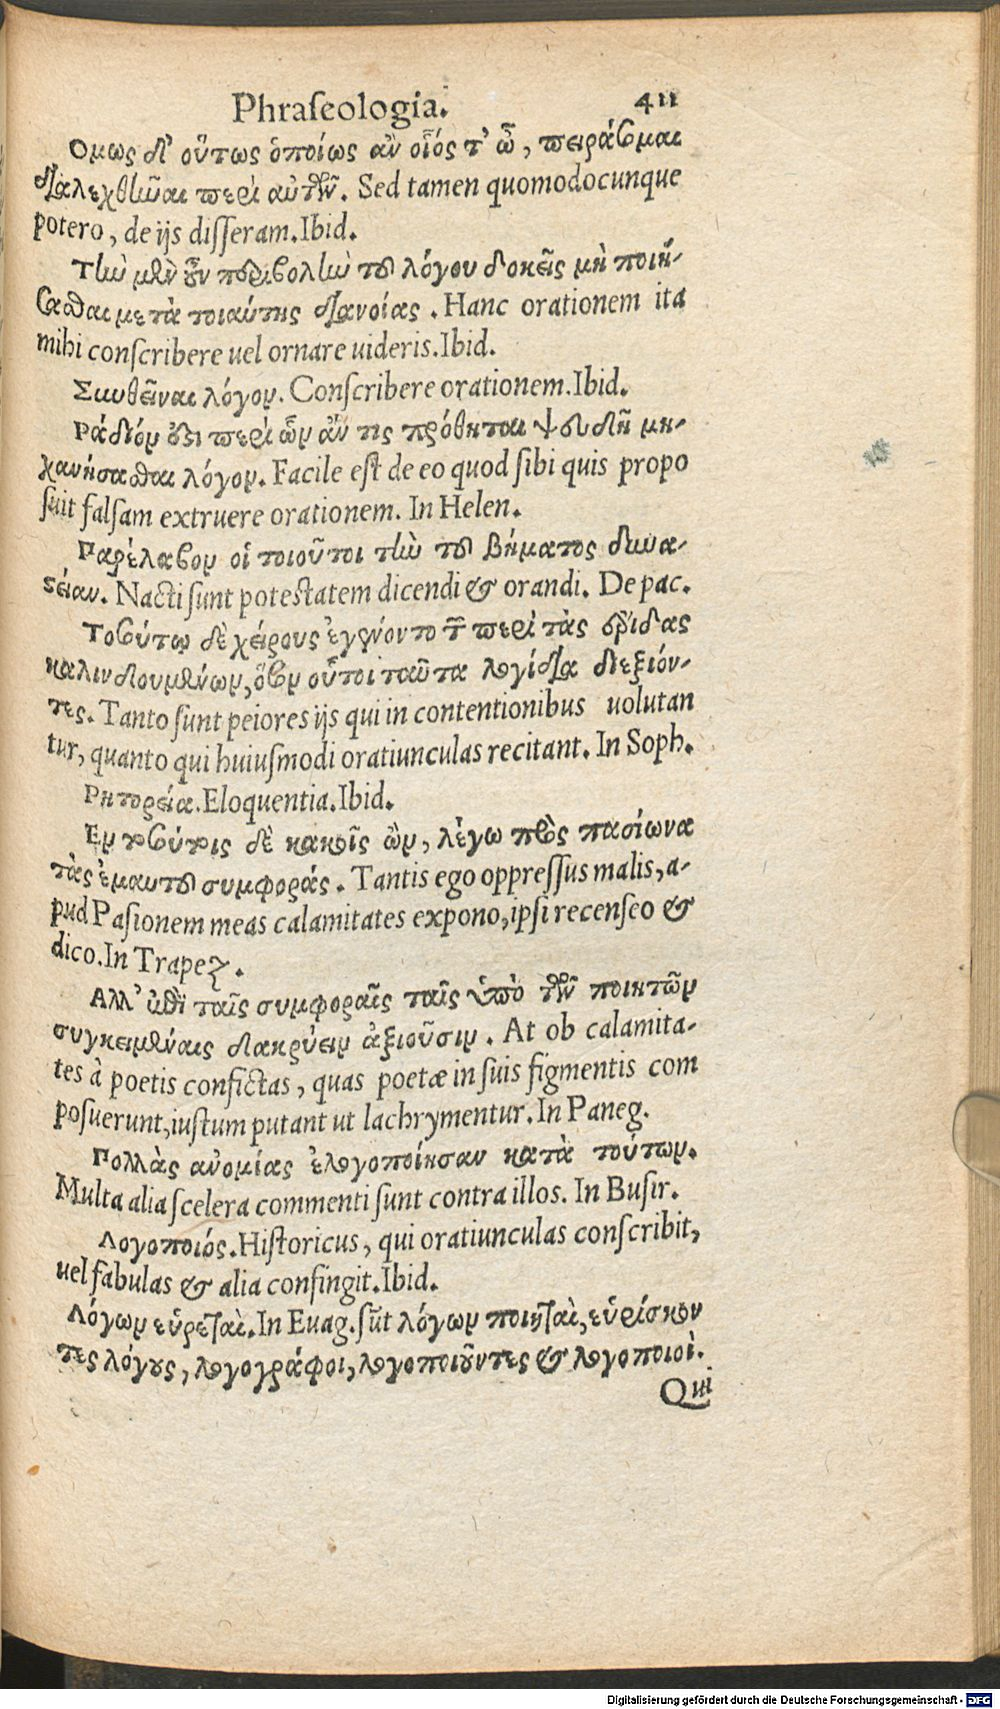 Phraſeologia. 411
Ομως δ' οὕτως ὁποίως ἂν οἷός τ' ὦ, πειράσομαι
διαλεχθῆναι περὶ αὐτῶν. Sed tamen quomodocunque
potero, de ijs diſſeram. Ibid.
Τὴν μὲν οὖν περιβολὴν τοῦ λόγου δοκεῖς μὴ ποιή-
σασθαι μετὰ τοιαύτης διανοίας. Hanc orationem ita
mihi conſcribere uel ornare uideris. Ibid.
Σκυθεῖναι λόγον. Conſcribere orationem. Ibid.
Ράδιόν ἐστι περὶ ὧν ἄν τις πρόθηται ψευδῆ μη-
χανήσασθαι λόγον. Facile eſt de eo quod ſibi quis propo
ſuit falſam extruere orationem. In Helen.
Παρέλαβον οἱ τοιοῦτοι τὴν τοῦ βήματος δυνα-
στείαν. Nacti ſunt poteſtatem dicendi & orandi. De pac.
Τοσούτῳ δὲ χείρους ἐγένοντο τῶν περὶ τὰς ἔριδας
καλινδουμένων, ὅσον οὗτοι ταῦτα λογίδια διεξιόν-
τες. Tanto ſunt peiores ijs qui in contentionibus uolutan
tur, quanto qui huiuſmodi oratiunculas recitant. In Soph.
Ρητορεία. Eloquentia. Ibid.
Εν τοσούτοις δὲ κακοῖς ὢν, λέγω πρὸς πασίωνα
τὰς ἐμαυτοῦ συμφοράς. Tantis ego oppreſſus malis, a-
pud Paſionem meas calamitates expono, ipſi recenſeo &
dico. In Trapez.
Αλλ' ἐπὶ ταῖς συμφοραῖς ταῖς ὑπὸ τῶν ποιητῶν
συγκειμέναις δακρύειν ἀξιοῦσιν. At ob calamita-
tes à poetis confictas, quas poetæ in ſuis figmentis com
poſuerunt, iuſtum putant ut lachrymentur. In Paneg.
Πολλὰς ἀνομίας ἐλογοποίησαν κατὰ τούτων.
Multa alia ſcelera commenti ſunt contra illos. In Buſir.
Λογοποιός. Hiſtoricus, qui oratiunculas conſcribit,
uel fabulas & alia confingit. Ibid.
Λόγων εὑρεταὶ. In Euag. ſūt λόγων ποιηταὶ, εὑρίσκον
τες λόγους, λογογράφοι, λογοποιοῦντες & λογοποιοὶ.
Qui
Digitalisierung gefördert durch die Deutsche Forschungsgemeinschaft - DFG